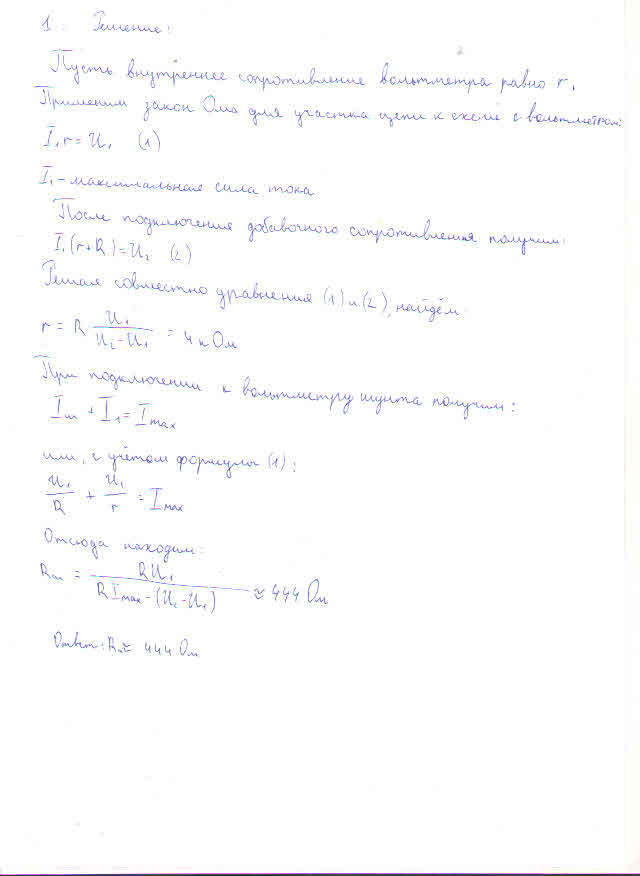 1. Решение:
Пусть внутреннее сопротивление вольтметра равно r.
Применим закон Ома для участка цепи к схеме с вольтметром:
I₁r = U₁ (1)
I₁ - максимальная сила тока
После подключения добавочного сопротивления получим:
I₁(r+R) = U₂ (2)
Решая совместно уравнения (1) и (2), найдём
r = R U₁/(U₂-U₁) = 4 кОм
При подключении к вольтметру шунта получим:
Iш + I₁ = Imax
или, с учётом формулы (1):
U₁/R + U₁/r = Imax
Отсюда находим:
Rш = RU₁/(RImax-(U₂-U₁)) ≈ 444 Ом
Ответ: Rш ≈ 444 Ом